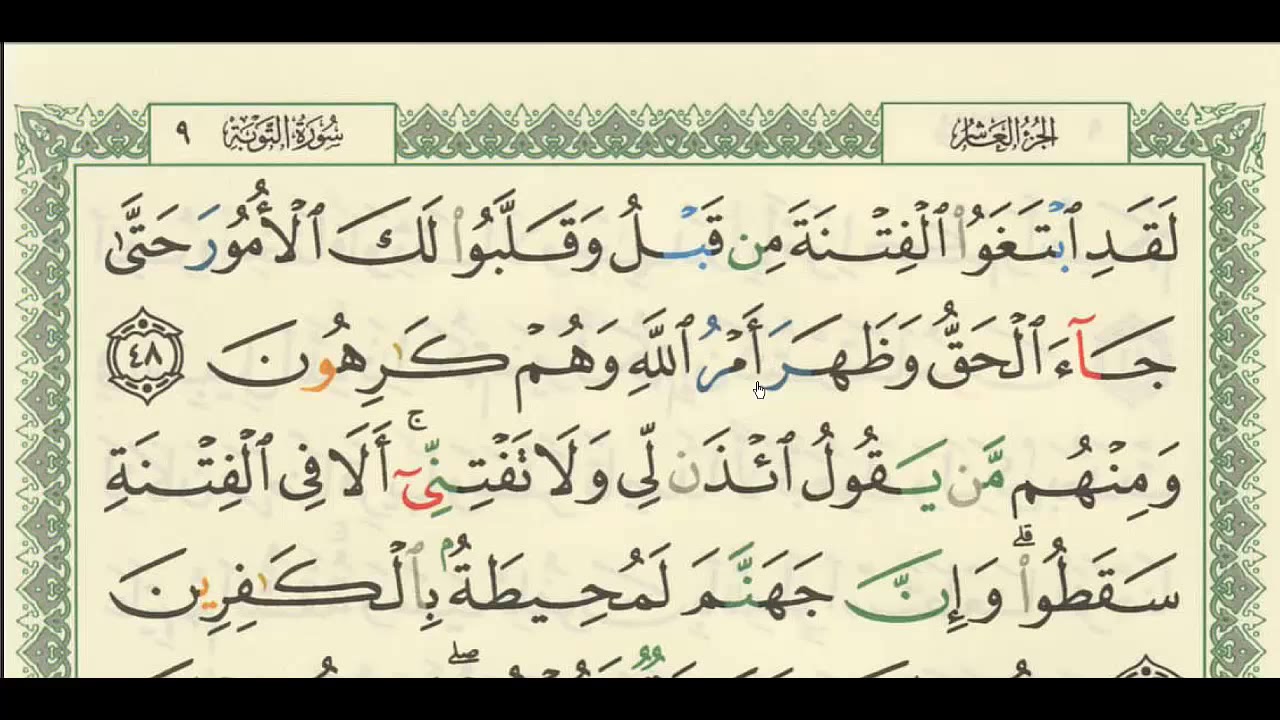 الجزء العاشر
سورة التوبة ٩
لَقَدِ ٱبْتَغَوُا۟ ٱلْفِتْنَةَ مِن قَبْلُ وَقَلَّبُوا۟ لَكَ ٱلْأُمُورَ حَتَّىٰ
جَآءَ ٱلْحَقُّ وَظَهَرَ أَمْرُ ٱللَّهِ وَهُمْ كَـٰرِهُونَ ٤٨
وَمِنْهُم مَّن يَقُولُ ٱئْذَن لِّى وَلَا تَفْتِنِّىٓ ۚ أَلَا فِى ٱلْفِتْنَةِ
سَقَطُوا۟ ۗ وَإِنَّ جَهَنَّمَ لَمُحِيطَةٌۢ بِٱلْكَـٰفِرِينَ